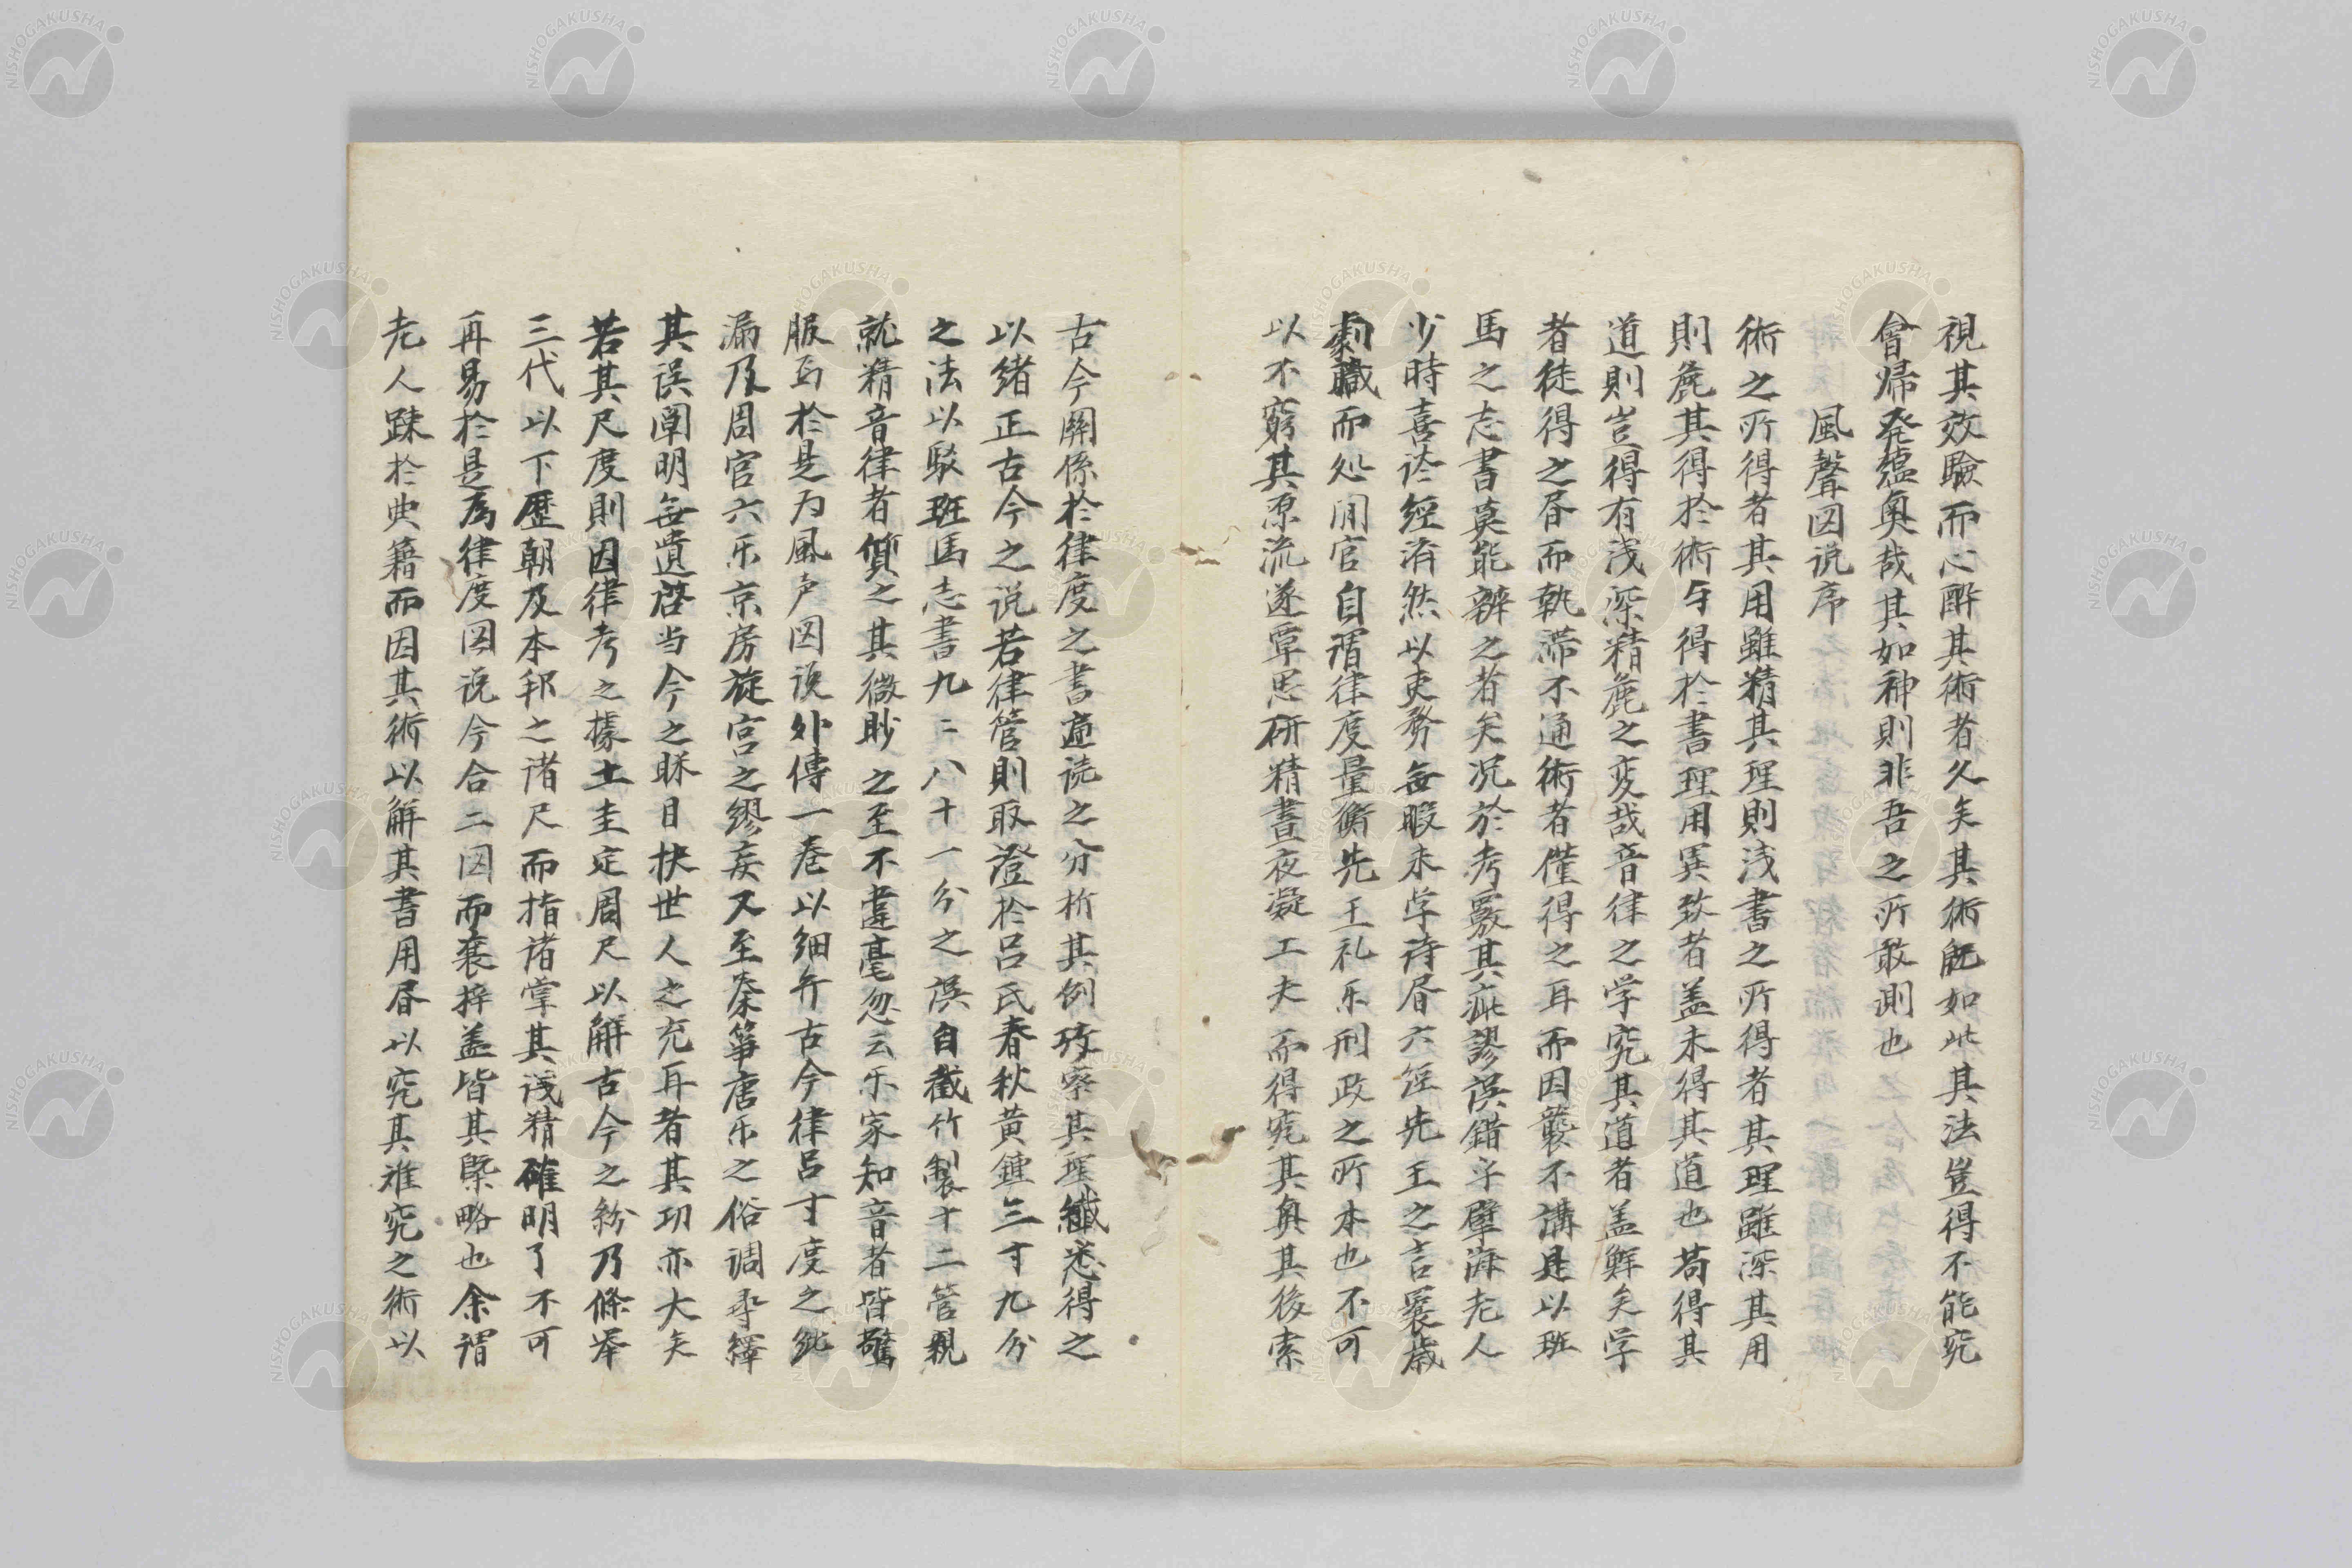 視其效驗而心酔其術者久矣其術既如此其法豈得不能究
會帰発蘊奥哉其如神則非吾之所敢測也
風聲図说序
術之所得者其用雖精其理則浅書之所得者其理雖深其用
則麁其得於術与得於書理用異致者盖未得其道也苟得其
道則豈得有浅深精麁之変哉音律之学究其道者盖鮮矣学
者徒得之昏而執滞不通術者僅得之耳而因襲不講是以班
馬之志書莫能辨之者矣况於考覈其疵謬误錯乎犀海老人
少時喜读經済然以吏務每暇未卒诗昏六経先王之言曩歳
劇職而処閒官自謂律度量衡先王礼乐刑政之所本也不可
以不窮其源流遂覃思研精晝夜凝工夫而得究其奥其後索
古今関係於律度之書遍读之分析其例攷察其理纖悉得之
以緒正古今之说若律管則取澄於呂氏春秋黄鍾三寸九分
之法以駁班馬志書九二八十一分之误自截竹製十二管親
就精音律者質之其微眇之至不違毫忽云乐家知音者皆驚
服焉於是为風声図说外傳一卷以细弁古今律呂寸度之純
漏及周官六乐京房旋宮之繆妄又至秦箏唐乐之俗调尋繹
其误闡明每遺啓当今之眯目快世人之充耳者其功亦大矣
若其尺度則因律考之據土圭定周尺以解古今之紛乃條举
三代以下歴朝及本邦之诸尺而指诸掌其浅精確明了不可
再易於是為律度図说今合二図而裒梓盖皆其槩略也余謂
老人踈於典籍而因其術以解其書用昏以究其难究之術以